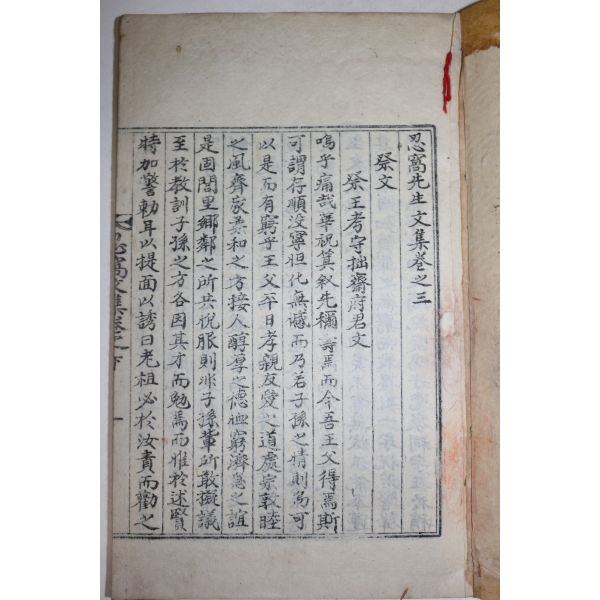 忍窩先生文集卷之三
祭文
祭王考守拙齋府君文
嗚乎痛哉華祝箕叙先稱壽焉而今吾王父得焉斯
可謂存順没寧怛化無憾而乃若子孫之情則烏可
以是而有窮乎王父平日孝親友愛之道處宗敦睦
之風齊家柔和之方接人醇厚之德恤窮濟急之誼
是固閭里鄉鄰之所共悅服則非子孫輩所敢擬議
至於教訓子孫之方各因其才而勉焉而雅於迷賢
特加警勅耳以提面以誘曰老祖必於汝責而勸之
忍窩文集卷之 一